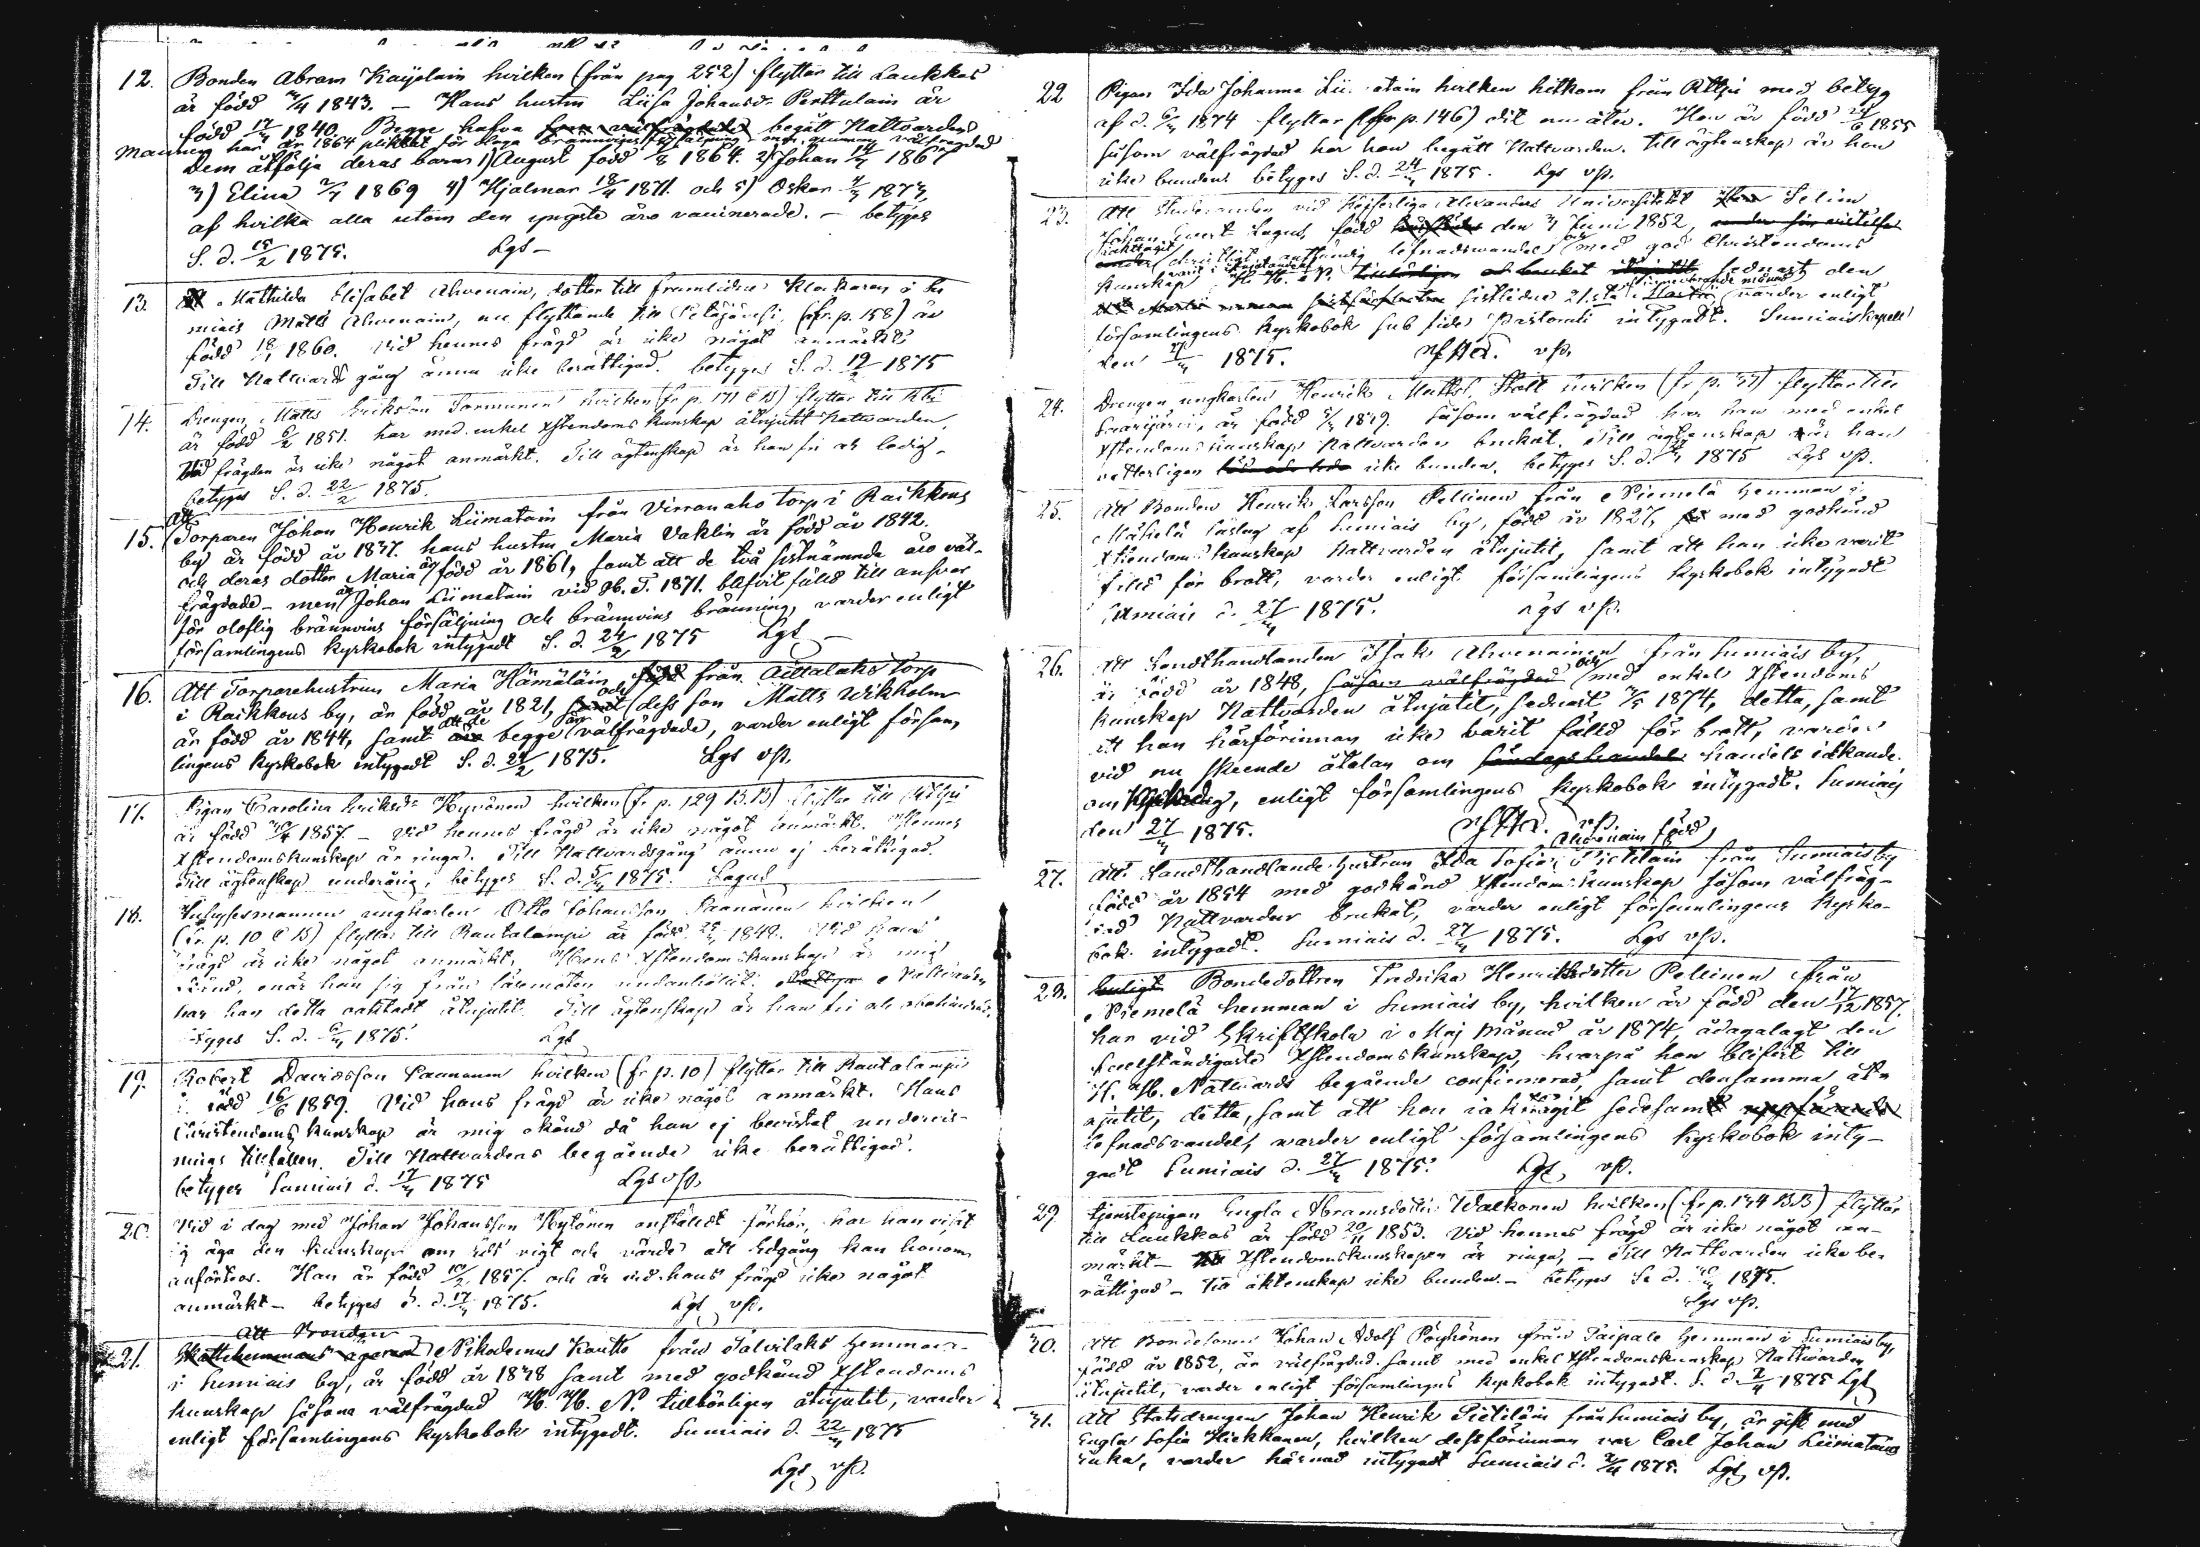 12. Bonden Abram Kaijolain hvilken (från pag 252) flyttar till Laukkas
är född 1843. – Hans hustru Liisa Johansdr Perttulain är
född 1840. Begge hafva begått Nattvarden
Mannen har år 1864 pliktat för olaga bränvinsförsäljning men qvinnan välfrägdad
Dem åtfölja deras barn 1) August född 1864. 2) Johan 1867
3) Elina 1869 4) Hjalmar 18/4 1871. och 5) Oskar 1873,
af hvilka alla utom den yngste äro vaccinerade. – betyges
S. d. 15/2 1875. Lgs –
13. Mathilda Elisabet Ahvenain, dotter till framlidne Klockaren i Su
miais Matts Ahvenain, nu flyttande till Petäjävesi, (fr. p. 158) är
född 1860. Vid hennes frägd är icke något anmärkt
Till Nattvards gång ännu icke berättigad. betyges S. d. 19/2 1875
14. Drengen Matts Eriksson Tarvainen hvilken (fr p. 171 C B) flyttar till
är född 6/2 1851. har med enkel Xstendoms kunskap åtnjutit Nattvarden.
Vid frägden är icke något anmärkt. Till ägtenskap är han fri och ledig –
betyges S. d. 22/2 1875.
15. Att Torparen Johan Henrik Liimatain från Virranaho torp i Raikkous
by är född år 1837. hans hustru Maria Vaklin är född år 1842.
och deras dotter Maria är född år 1861, samt att de två sistnämnde äro väl-
frägdade – men att Johan Liimatain vid H. T. 1871. blifvit fälld till ansvar
för oloflig brännvins försäljning och brännvins bränning, varder enligt
församlingens kyrkobok intygadt S. d. 24/2 1875 Lgs –
16. Att Torparehustrun Maria Hämäläin född från Aittalaks torp
i Raikkous by, är född år 1821, samt och dess son Matts Wikholm
är född år 1844, samt att de begge är välfrägdade, varder enligt försam-
lingens kyrkobok intygadt S. d. 24/2 1875. Lgs vp.
17. Pigan Carolina Eriksdr Hyvönen hvilken (fr p. 129 B.B) flyttar till
är född 1857. – Vid hennes frägd är icke något anmärkt. Hennes
Xstendomskunskap är ringa. Till Nattvardsgång ännu ej berättigad.
Till ägtenskap underårig, betyges S. d. 1875. Lagus
18. Inhysesmannen ungkarlen Otto Johansson Paananen hvilken
(fr. p. 10 C B) flyttar till Rautalampi är född 1849. Vid hans
frägd är icke något anmärkt. Hans Xstendoms kunskap är mig
okänd, enär han sig från läsemöten undanhållit. Nattvarden
har han detta oaktadt åtnjutit. Till ägtenskap är han fri och ohindrad.
betyges S. d. 1875. Lgs
19. Robert Davidsson Paananen hvilken (fr p. 10) flyttar till Rautalampi
är född 16/6 1859. Vid hans frägd är icke något anmärkt. Hans
Christendoms kunskap är mig okänd då han ej bevistat undervis-
nings tillfällen. Till Nattvardens begående icke berättigad.
betyges Sumiais d. 17/3 1875 Lgs vp.
20. Vid i dag med Johan Johansson Hytönen anstäldt förhör, har han visat
sig äga den kunskap om eds vigt och värde att Edgång kan honom
anförtros. Han är född 10/2 1857 och är vid hans frägd icke något
anmärkt – betyges S. d. 17/3 1875. Lgs vp.
21. Att Bonden Skattehemmans ägaren Nikodemus Kautto från Talvilaks hemman
i Sumiais by, är född år 1838 samt med godkänd Xstendoms
kunskap såsom välfrägdad H. H. N. tillbörligen åtnjutit, varder
enligt församlingens kyrkobok intygadt. Sumiais d. 22/3 1875
Lgs vp.
22 Pigan Ida Johanna Liimatain hvilken hitkom från med betyg
af d. 1874 flyttar (fr p. 146) dit nu åter. Hon är född 1855
Såsom välfrägdad har hon begått Nattvarden. Till ägtenskap är hon
icke bunden. betyges S. d. 24/3 1875. Lgs vp.
23. Att Studeranden vid Kejserliga Alexanders Universitetet Selim
Johan Evert Lagus, född den 3 Juni 1852,
iakttagit christligt anständig lefnadswandel, och med god Christendoms
kunskap H. H. N. sednast den
sistlidne 21.sta varder enligt
församlingens kyrkobok sub fide pastorali intygadt. Sumiais kapell
den 1875. vp.
24. Drengen ungkarlen Henrik Mattss. Stolt hvilken (fr p. 57) flyttar till
Saarijärvi, är född 1849. Såsom välfrägdad har han med enkel
Xstendoms kunskap Nattvarden brukat. Till ägtenskap är han
vetterligen icke bunden. betyges S. d. 1875 Lgs vp.
25. Att Bonden Henrik Larsson Pellinen från Niemelä hemman i
af Sumiais by, född år 1827, med godkänd
Xstendoms kunskap Nattvarden åtnjutit, samt att han icke varit
fälld för brott, varder enligt församlingens kyrkobok intygadt
Sumiais d. 27/3 1875. Lgs vp.
26. Att Landthandlanden Isak Ahvenainen från Sumiais by,
är född år 1848, såsom välfrägdad och med enkel Xstendoms
kunskap Nattvarden åtnjutit, sednast 1874, detta, samt
att han härförinnan icke varit fälld för brott, varder
vid nu skeende åtalan om söndagshandel handels idkande
om, enligt församlingens kyrkobok intygadt. Sumiais
den 27/3 1875. vp.
27. Att Landthandlande hustrun Ida Sofia Ahvenain född Pietiläin från Sumiais by
född år 1854 med godkänd Xstendoms kunskap såsom välfräg-
dad Nattvarden brukat, varder enligt församlingens kyrko-
bok intygadt. Sumiais d. 27/3 1875. Lgs vp.
28. Enligt Bondedottren Fredrika Henriksdotter Pellinen från
Niemelä hemman i Sumiais by, hvilken är född den 17/12 1857.
har vid Skriftskola i Maj månad år 1874, ådagalagt den
fullständigaste Xstendomskunskap, hvarpå hon blifvit till
H. H. Nattvards begående confirmerad, samt densamma åt-
njutit, detta, samt att hon iakttagit sedesamt
lefnadsvandel, varder enligt församlingens kyrkobok inty-
gadt Sumiais d. 27/3 1875. Lgs vp.
29 Tjenstepigan Engla Abramsdotter Walkonen hvilken (fr p. 134 BB) flyttar
till Laukkas är född 20/11 1853. Vid hennes frägd är icke något an-
märkt – Xstendomskunskapen är ringa, – Till Nattvarden icke be-
rättigad – till äktenskap icke bunden. – betyges S. d. 1875.
Lgs vp.
30. Att Bondesonen Johan Adolf Pöyhönen från Taipale hemman i Sumiais by,
född år 1852, är välfrägdad samt med enkel Xstendomskunskap Nattvarden
åtnjutit, varder enligt församlingens kyrkobok intygadt. S. d. 2/4 1875 Lgs
31. Att Statdrengen Johan Henrik Pietiläin från Sumiais by, är gift med
Engla Sofia Hiekkanen, hvilken dessförinnan var Carl Johan Liimatains
enka, varder härmed intygadt Sumiais d. 1875. Lgs vp.